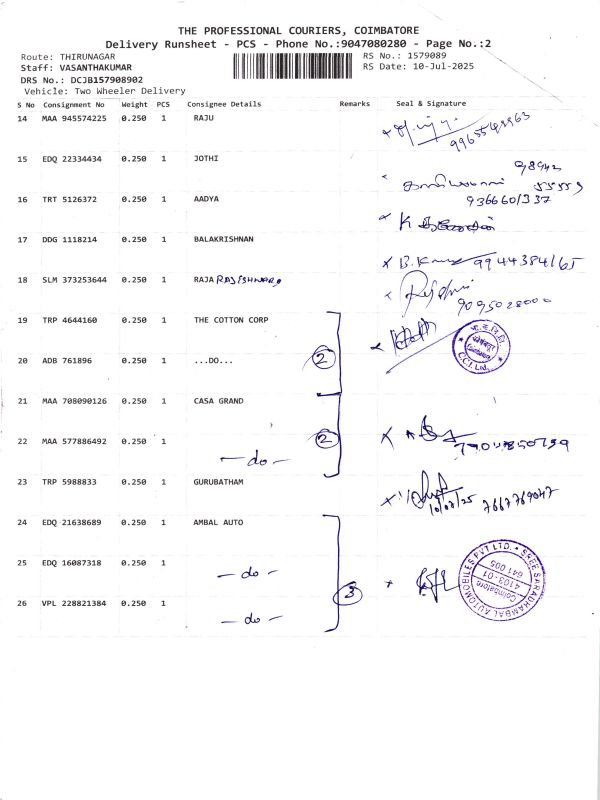 THE PROFESSIONAL COURIERS, COIMBATORE
Delivery Runsheet - PCS - Phone No.:9047080280 - Page No.:2
Route: THIRUNAGAR RS No.: 1579089
Staff: VASANTHAKUMAR RS Date: 10-Jul-2025
DRS No.: DCJB157908902
Vehicle: Two Wheeler Delivery
S No Consignment No Weight PCS Consignee Details Remarks Seal & Signature
14 MAA 945574225 0.250 1 RAJU
15 EDQ 22334434 0.250 1 JOTHI
16 TRT 5126372 0.250 1 AADYA
9366601337
17 DDG 1118214 0.250 1 BALAKRISHNAN
B.Kumar 9944384165
18 SLM 373253644 0.250 1 RAJA RAJESHWARI
9095028000
19 TRP 4644160 0.250 1 THE COTTON CORP
C.C.I. Ltd.
20 ADB 761896 0.250 1 ...DO... 2
21 MAA 708090126 0.250 1 CASA GRAND
22 MAA 577886492 0.250 1 2
-do-
23 TRP 5988833 0.250 1 GURUBATHAM
10/07/25 7667769047
24 EDQ 21638689 0.250 1 AMBAL AUTO
25 EDQ 16087318 0.250 1 -do- 3
SREE SARADHAMBAL AUTOMOBILES PVT LTD.
4103-01
Coimbatore
641 005
26 VPL 228821384 0.250 1 -do-